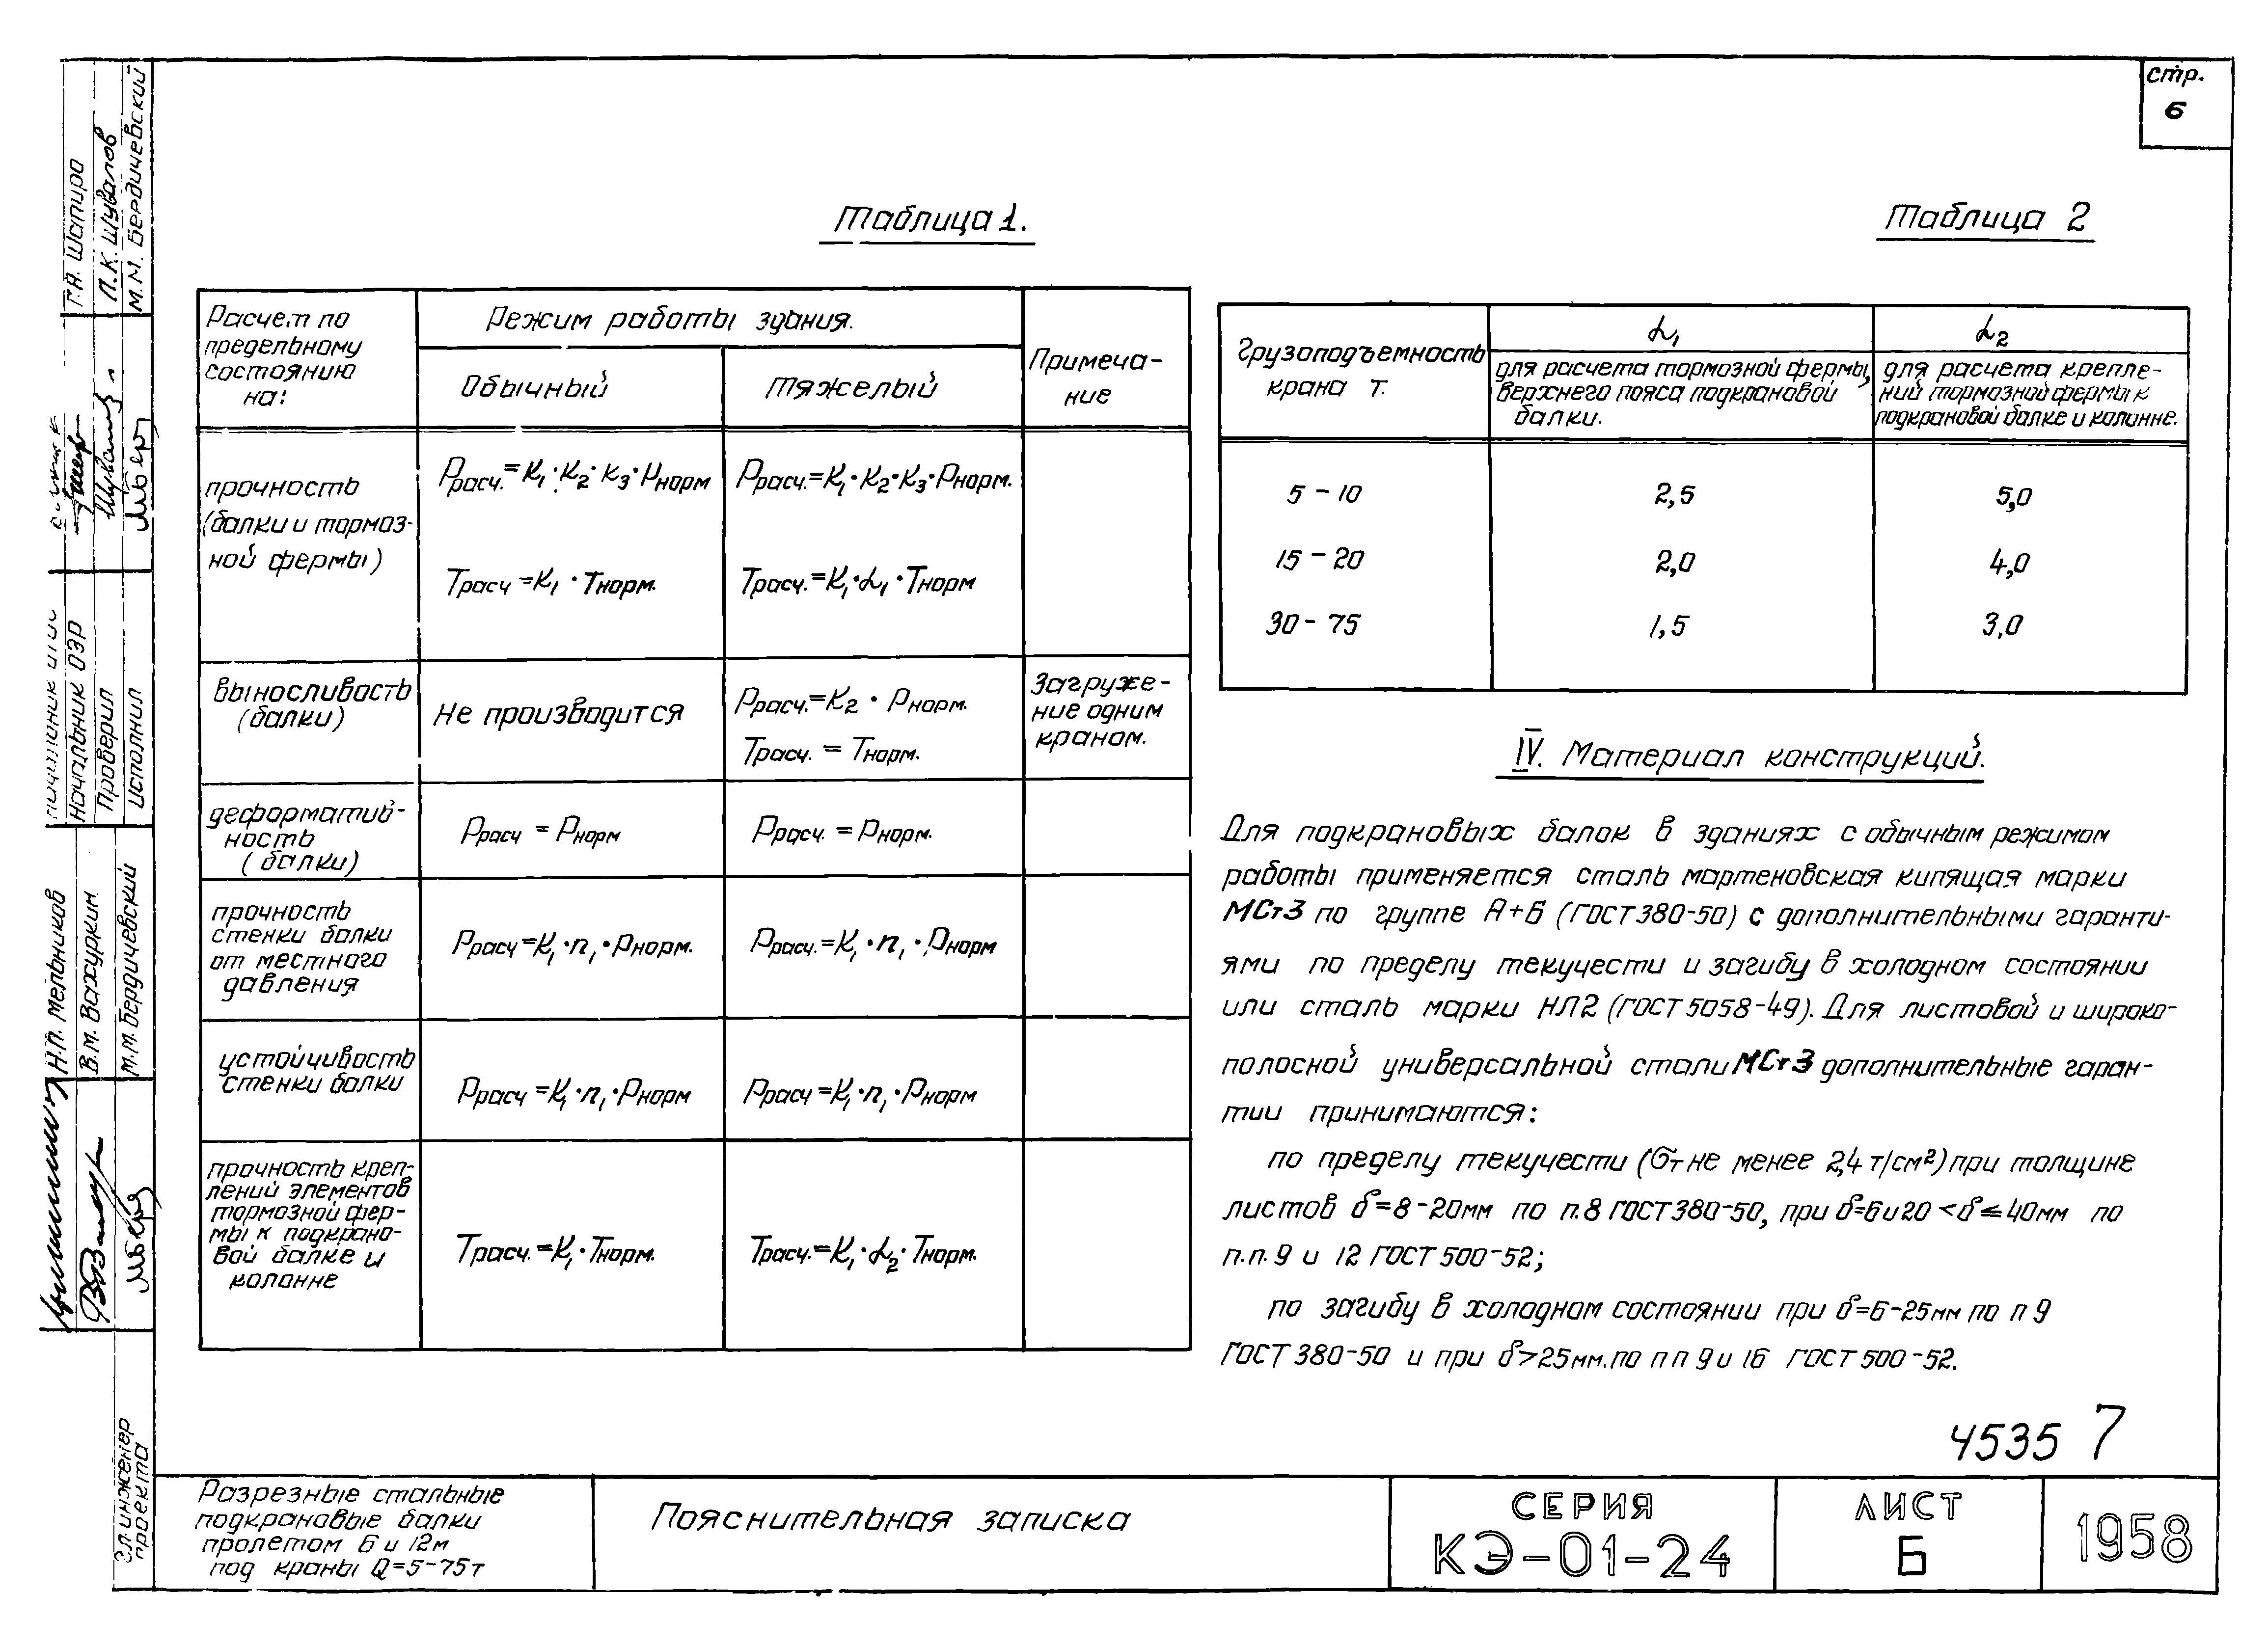 стр.
6
Таблица 1.
Расчет по
предельному
состоянию
на:
Режим работы здания.
Обычный
Тяжелый
Примеча-
ние
прочность
(балки и тормоз-
ной фермы)
Ррасч.=К₁·К₂·К₃·Рнорм
Ррасч.=К₁·К₂·К₃·Рнорм.
Трасч=К₁·Тнорм.
Трасч.=К₁·α₁·Тнорм
выносливость
(балки)
Не производится
Ррасч.=К₂·Рнорм.
Трасч.=Тнорм.
Загруже-
ние одним
краном.
деформатив-
ность
(балки)
Ррасч = Рнорм
Ррасч. = Рнорм.
прочность
стенки балки
от местного
давления
Ррасч=К₁·n₁·Рнорм.
Ррасч.=К₁·n₁·Рнорм
устойчивость
стенки балки
Ррасч=К₁·n₁·Рнорм
Ррасч=К₁·n₁·Рнорм
прочность креп-
лений элементов
тормозной фер-
мы к подкрано-
вой балке и
колонне
Трасч.=К₁·Тнорм.
Трасч.=К₁·α₂·Тнорм.
Таблица 2
Грузоподъемность
крана т.
α₁
для расчета тормозной фермы,
верхнего пояса подкрановой
балки.
α₂
для расчета крепле-
ний тормозной фермы к
подкрановой балке и колонне.
5-10 2,5 5,0
15-20 2,0 4,0
30-75 1,5 3,0
IV. Материал конструкций.
Для подкрановых балок в зданиях с обычным режимом
работы применяется сталь мартеновская кипящая марки
МСт3 по группе А+Б (ГОСТ 380-50) с дополнительными гаранти-
ями по пределу текучести и загибу в холодном состоянии
или сталь марки НЛ2 (ГОСТ 5058-49). Для листовой и широко-
полосной универсальной стали МСт3 дополнительные гаран-
тии принимаются:
по пределу текучести (σт не менее 2,4 т/см²) при толщине
листов δ=8-20мм по п.8 ГОСТ 380-50, при δ=6 и 20<δ≤40мм по
п.п.9 и 12 ГОСТ 500-52;
по загибу в холодном состоянии при δ=6-25мм по п 9
ГОСТ 380-50 и при δ>25мм.по п п 9 и 16 ГОСТ 500-52.
4535 7
Разрезные стальные
подкрановые балки
пролетом 6 и 12м
под краны Q=5-75т
Пояснительная записка
СЕРИЯ
КЭ-01-24
ЛИСТ
Б
1958
Г.А. Шапиро
П.К. Шувалов
М.М. Бердичевский
Начальник ОЭР
Проверил
исполнил
Н.П. Мельников
В.М. Вахуркин
М.М. Бердичевский
Гл. инженер
проекта